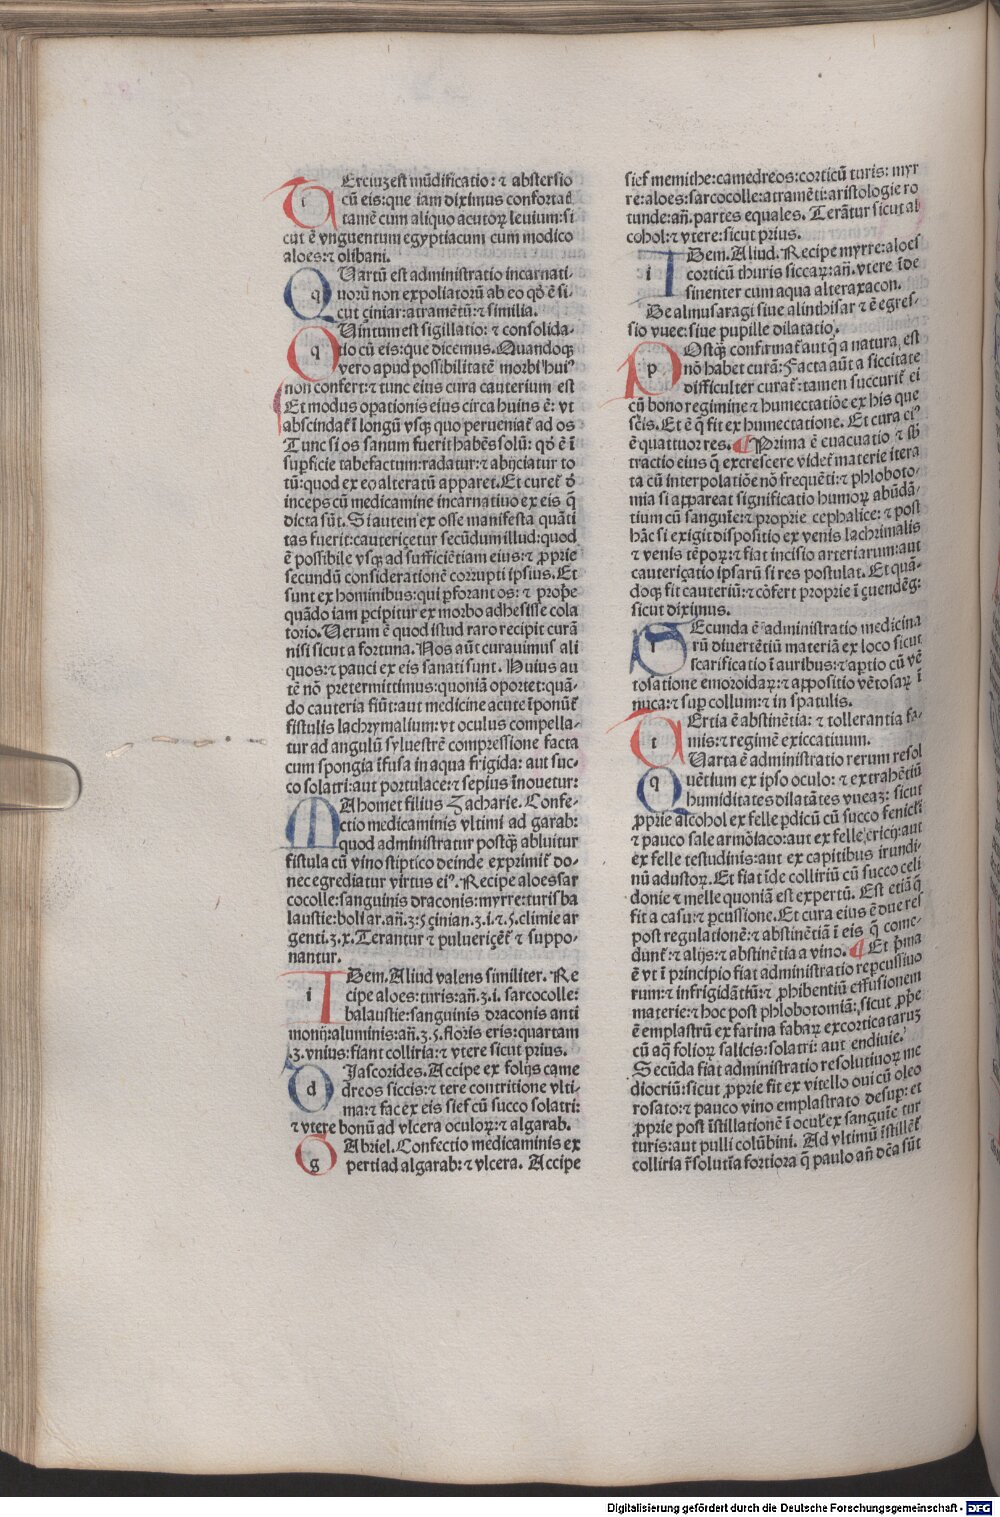 TErciuȝ est mūdificatio: ⁊ abstersio
cū eis: que iam diximus confortat̄
tamē cum aliquo acutoꝝ leuium: si
cut ē vnguentum egyptiacum cum modico
aloes: ⁊ olibani.
QUartū est administratio incarnati-
uorū non expoliatorū ab eo qđ ē si
cut çiniar: atramētū: ⁊ similia.
QUintum est sigillatio: ⁊ consolida-
tio cū eis: que dicemus. Quandoqꝫ
vero apud possibilitatē morbi hui⁹
non confert: ⁊ tunc eius cura cauterium est
Et modus opationis eius circa huius ē: vt
abscindat̄ ī longū vsqꝫ quo perueniat̄ ad os
Tunc si os sanum fuerit habēs solū: qđ ē ī
suꝑficie tabefactum: radatur: ⁊ abijciatur to
tū: quod ex eo alteratū apparet. Et curet̄ đ
inceps cū medicamine incarnatiuo ex eis q̄
dicta sūt. Si autem ex osse manifesta quāti
tas fuerit: cauteriçetur secūdum illud: quod
ē possibile vsqꝫ ad sufficiētiam eius: ⁊ ꝓprie
secundū considerationē corrupti ipsius. Et
sunt ex hominibus: qui ꝑforant os: ⁊ prope
quādo iam ꝑcipitur ex morbo adhesisse cola
torio. Uerum ē quod istud raro recipit curā
nisi sicut a fortuna. Nos aūt curauimus ali
quos: ⁊ pauci ex eis sanati sunt. Huius au
tē nō pretermittimus: quoniā oportet: quā-
do cauteria fiūt: aut medicine acute īponūt̄
fistulis lachrymalium: vt oculus compella-
tur ad angulū syluestrē compressione facta
cum spongia īfusa in aqua frigida: aut suc-
co solatri: aut portulace: ⁊ sepius īnouetur:
MAhomet filius Zacharie. Confe-
ctio medicaminis vltimi ad garab:
quod administratur postqꝫ abluitur
fistula cū vino stiptico deinde exprimit̄ do-
nec egrediatur virtus ei⁹. Recipe aloes sar
cocolle: sanguinis draconis: myrre: turis ba
laustie: boli ar. añ. ʒ. ꝭ çinian. ʒ. i. ⁊. ꝭ. climie ar
genti. ʒ. x. Terantur ⁊ pulueriçēt̄ ⁊ suppo-
nantur.
IDem. Aliud valens similiter. Re
cipe aloes: turis: añ. ʒ. i. sarcocolle:
balaustie: sanguinis draconis anti
monij: aluminis: añ. ʒ. ꝭ. floris eris: quartam
.ʒ. vnius: fiant colliria: ⁊ vtere sicut prius.
DJascorides. Accipe ex folijs came
dreos siccis: ⁊ tere contritione vlti-
ma: ⁊ fac ex eis sief cū succo solatri:
⁊ vtere bonū ad vlcera oculoꝝ: ⁊ algarab.
GAbriel. Confectio medicaminis ex
perti ad algarab: ⁊ vlcera. Accipe
sief memithe: camedreos: corticū turis: myr
re: aloes: sarcocolle: atramēti: aristologie ro
tunde: añ. partes equales. Terātur sicut al
cohol: ⁊ vtere: sicut prius.
IDem. Aliud. Recipe myrre: aloes
corticū thuris siccaꝝ: añ. vtere īde
sinenter cum aqua alteraxacon.
De almusaragi siue alinthisar ⁊ ē egres-
sio vuee: siue pupille dilatatio.
POstqꝫ confirmat̄ aut q̄ a natura, est
nō habet curā: Facta aūt a siccitate
difficulter curat̄: tamen succurit̄ ei
cū bono regimine ⁊ humectatiōe ex his que
sc̄is. Et ē q̄ fit ex humectatione. Et cura ei⁹
ē quattuor res. ¶ Prima ē euacuatio ⁊ sb̄
tractio eius q̄ excrescere videt̄ materie itera
ta cū interpolatiōe nō frequēti: ⁊ phloboto-
mia si appareat significatio humoꝝ abūdā-
tium cū sanguīe: ⁊ proprie cephalice: ⁊ post
hāc si exigit dispositio ex venis lachrimalis
⁊ venis tēpoꝝ: ⁊ fiat incisio arteriarum: aut
cauteriçatio ipsarū si res postulat. Et quā-
doqꝫ fit cauteriū: ⁊ cōfert proprie ī çuendēg:
sicut diximus.
SEcunda ē administratio medicina
rū diuertētiū materiā ex loco sicut
scarificatio ī auribus: ⁊ aꝑtio cū vē
tosatione emoroidaꝝ: ⁊ appositio vētosaꝝ ī
nuca: ⁊ suꝑ collum: ⁊ in spatulis.
TErtia ē abstinētia: ⁊ tollerantia fa-
mis: ⁊ regimē exiccatiuum.
QUarta ē administratio rerum resol
uētium ex ipso oculo: ⁊ extrahētiū
humiditates dilatātes vueaȝ: sicut
ꝓprie alcohol ex felle ꝑdicū cū succo feniculi
⁊ pauco sale armōiaco: aut ex felle ericij: aut
ex felle testudinis: aut ex capitibus irundi-
nū adustoꝝ. Et fiat īde colliriū cū succo celi
donie ⁊ melle quoniā est expertū. Est etiā q̄
fit a casu: ⁊ ꝑcussione. Et cura eius ē due res
post regulationē: ⁊ abstinētiā ī eis q̄ come-
dunt̄: ⁊ alijs: ⁊ abstinētia a vino. ¶ Et ꝑma
ē vt ī principio fiat administratio repcussiuo
rum: ⁊ infrigidātiū: ⁊ ꝓhibentiū effusionem
materie: ⁊ hoc post phlobotomiā: sicut ꝓpe
ē emplastrū ex farina fabaꝝ excorticataruȝ
cū aq̄ folioꝝ salicis: solatri: aut endiuie.
Secūda fiat administratio resolutiuoꝝ me
diocriū: sicut ꝓprie fit ex vitello oui cū oleo
rosato: ⁊ pauco vino emplastrato desuꝑ: et
ꝓprie post īstillationē ī ocul̄ ex sanguīe tur
turis: aut pulli colūbini. Ad vltimū īstillēt̄
colliria r̄solutīa fortiora q̄ paulo añ dc̄a sūt
Digitalisierung gefördert durch die Deutsche Forschungsgemeinschaft - DFG